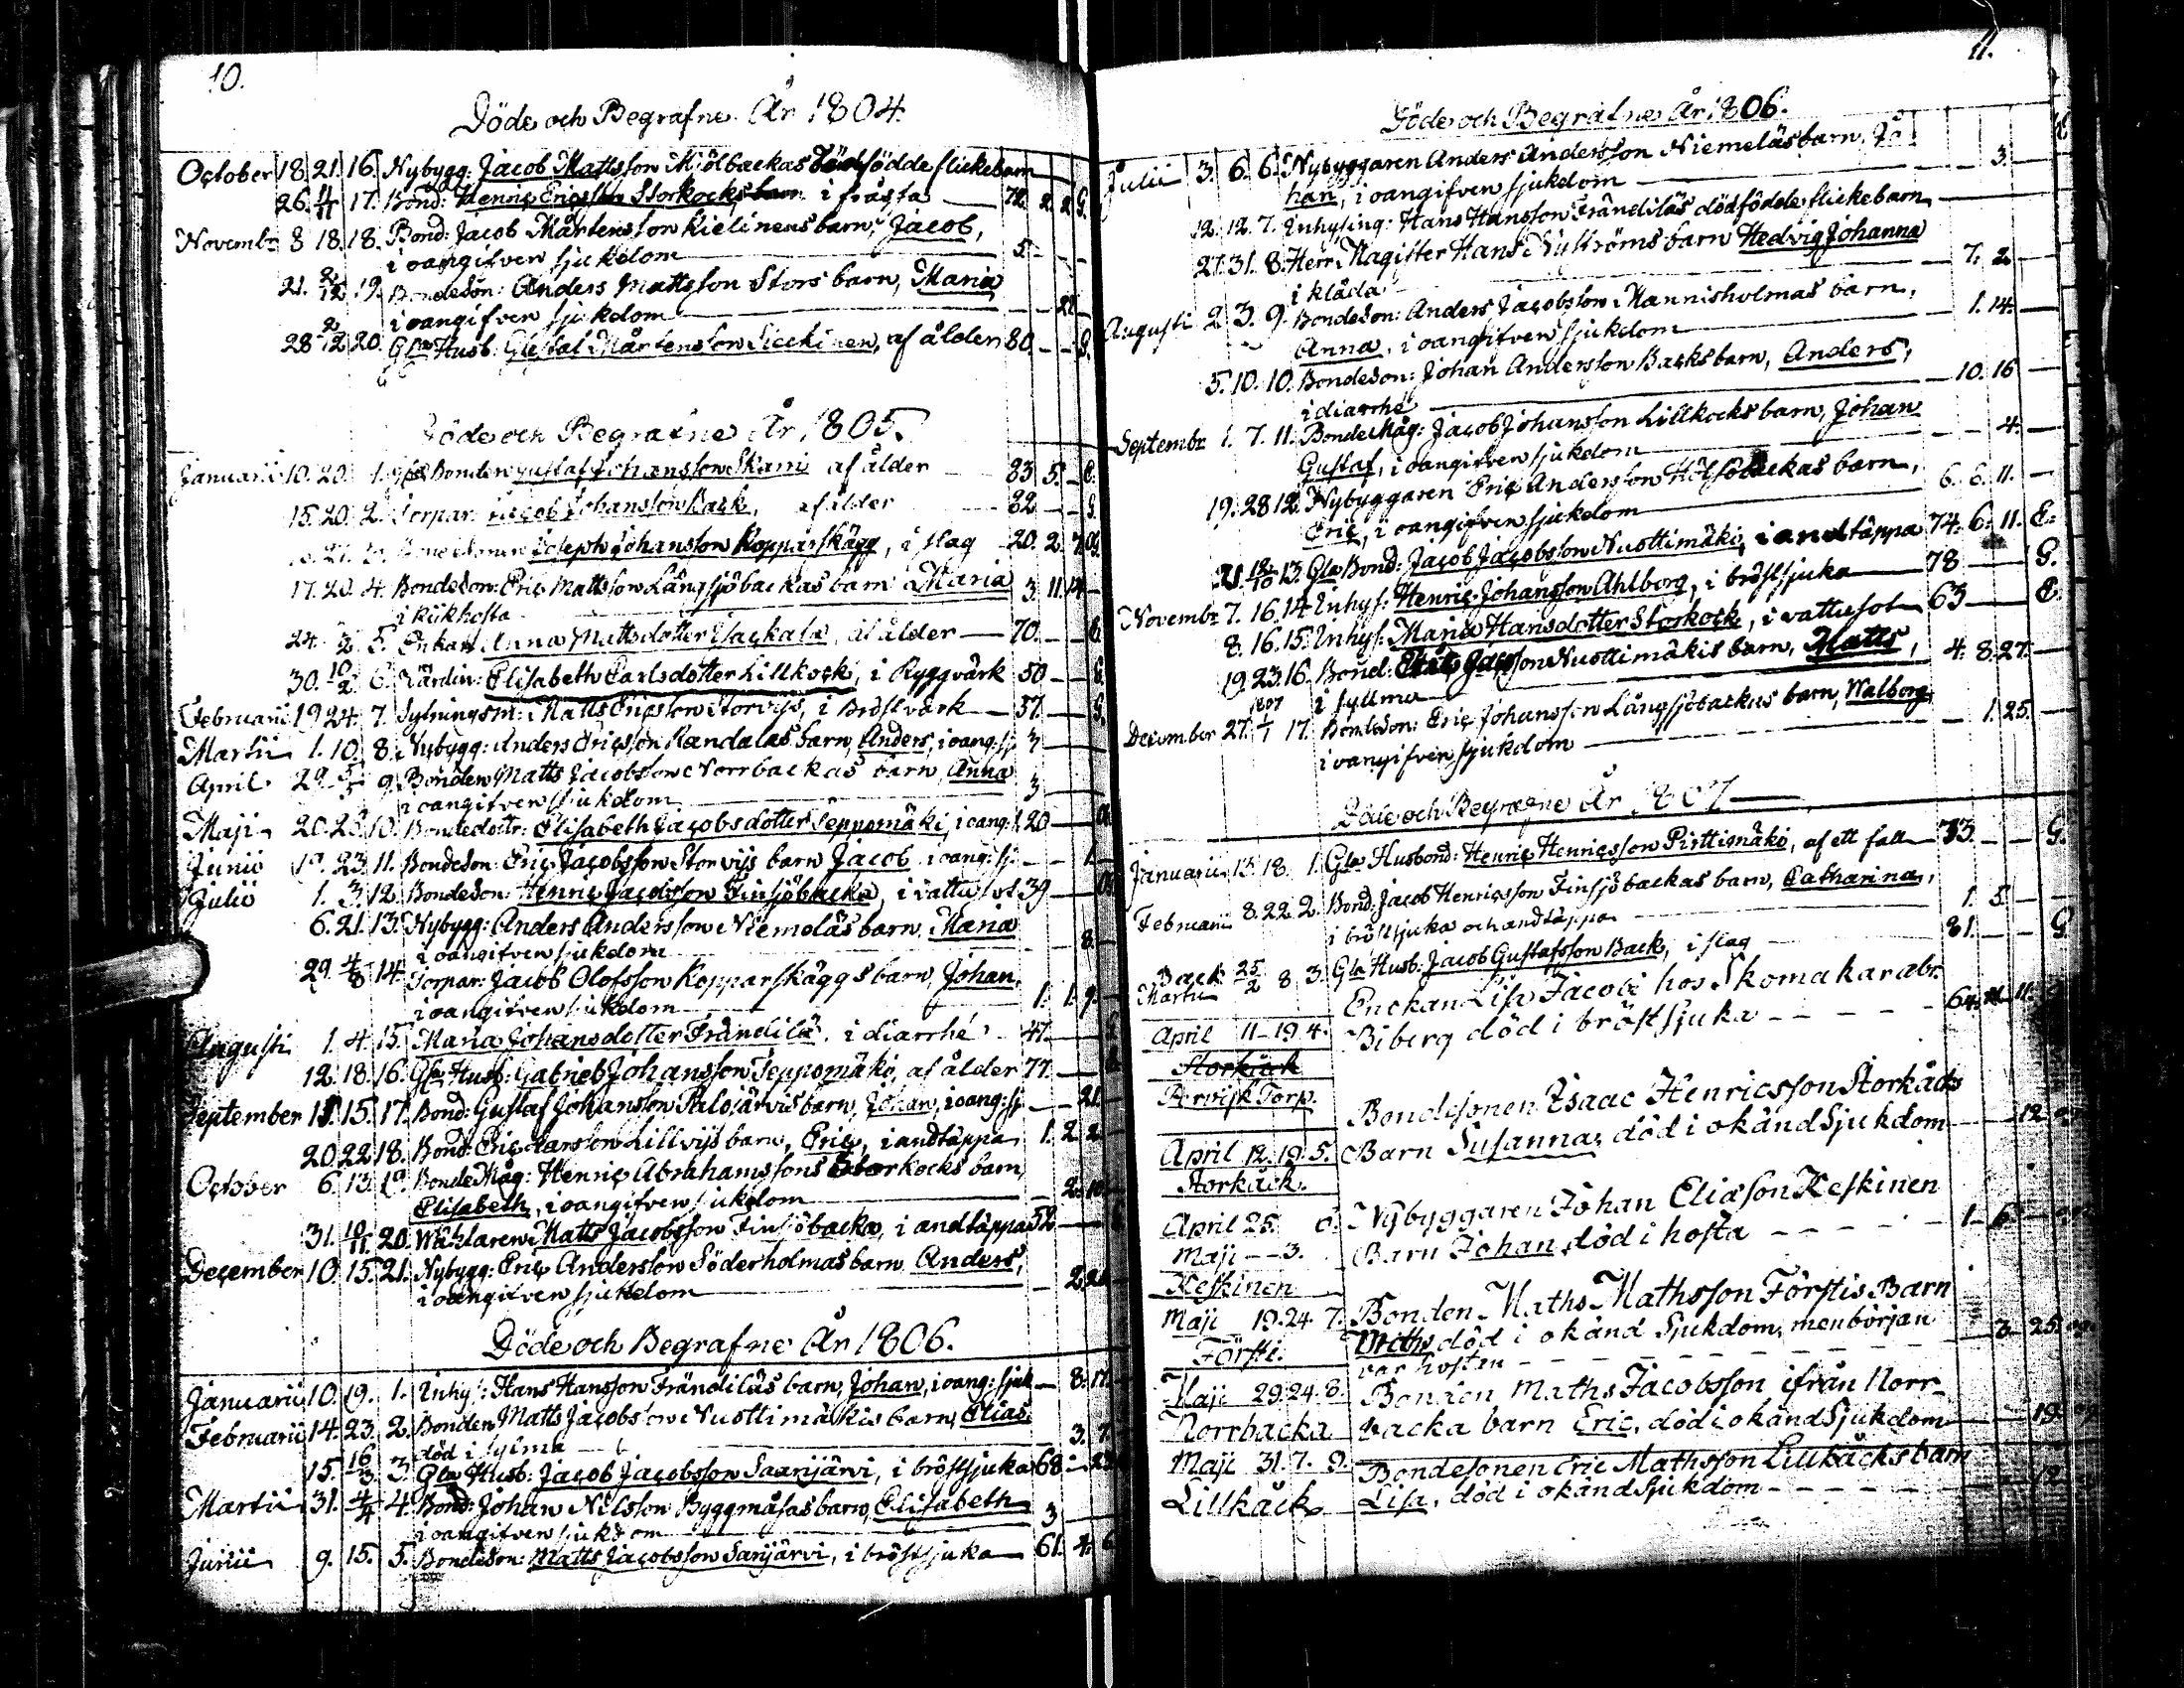 10.
Döde och Begrafne År 1804.
October 18. 21. 16. Nybygg: Jacob Mattsson Mjölbackas Dödfödde flickebarn
26. 4/11 17. Bond: Henric Ericsson Storkocks i fråssa 72. 2. 2 G.
Novembr 8 18. 18. Bond: Jacob Mårtensson Kielinens barn, Jacob,
i oangifven sjukdom 5. - -
21. 2/12 19. Bondeson: Anders Mattsson Stors barn, Maria
i oangifven sjukdom - 21
28 2/12 20. Gla Husb: Gustaf Mårtensson Sieckinen, af ålder 80 - - G.
Döde och Begrafne År 1805.
Januarii 10. 20. 1. Gla Bonden Gustaf Johansson Skani af ålder 83 5. - E.
15. 20. 2. Torpar: Jacob Johansson Back, af ålder 82 - - G.
Bondesonen Joseph Johansson Kopparskägg, i slag 20. 2. 7. Og.
17. 20. 4. Bondeson: Eric Mattsson Långsjöbackas barn Maria
i kikhosta 3. 11. 14 -
24. 3/2 5. Enkan Anna Mattsdotter Isackala, af ålder 70. - - E.
30. 10/2 6. Värdin: Elisabeth Carlsdotter Lillkock, i Ryggvärk 50 - - G.
Februarii 19 24. 7. Sytningsm: Matts Ericsson Storvijs, i Bröstvärk 57. - G.
Martii 1. 10. 8. Nybygg: Anders Ericsson Kandalas barn, Anders, i oang: sj. 3 -
April 29. 5/5 9. Bonden Matts Jacobsson Norrbackas barn Anna
i oangifven sjukdom 3
Maji 20. 23. 10. Bondedottr: Elisabeth Jacobsdotter Seppomäki, i oang: s. 20 - O.
Junii 19. 23. 11. Bondeson: Eric Jacobsson Storvijs barn Jacob i oang: sj. - 1.
Julii 1. 3. 12. Bondeson: Henric Jacobsson Finsjöbacka, i vattusot 39 - Og
6. 21. 13. Nybygg: Anders Andersson Niemeläs barn, Maria
i oangifven sjukdom - 8. -
29. 4/8 14. Torpar: Jacob Olofsson Kopparskäggs barn, Johan,
i oangifven sjukdom 1. 1. 9. -
Augusti 1. 4. 15. Maria Johansdotter Frändilä, i diarrhé 47. -
12. 18. 16. Gla Husb: Gabriel Johansson Seppomäki, af ålder 77. -
September 11. 15. 17. Bond: Gustaf Johansson Palojärvis barn, Johan, i oang: sj - 21.
20. 22. 18. Bond: Eric Larsson Lillvijs barn, Eric, i andtäppa 1. 2. 2
October 6. 13. 19. BondeMåg: Henric Abrahamssons Storkocks barn,
Elisabeth, i oangifven sjukdom - 2. 10.
31. 10/11 20. Matts Jacobsson Finsjöbacka, i andtäppa 52
December 10. 15. 21. Nybygg: Eric Andersson Söderholmas barn Anders,
i oangifven sjukdom - 2.
Döde och Begrafne År 1806.
Januarii 10. 19. 1. Inhys: Hans Hansson Frändiläs barn, Johan, i oang: sjuk - 8. 17.
Februarii 14. 23. 2. Bonden Matts Jacobsson Nuottimäkis barn, Elias
död i Sylma 3. 7.
15. 16/3 3. Gla Husb: Jacob Jacobsson Saarijärvi, i bröstsjuka 68. -
Martii 31. 4/4 4. Bond: Johan Nilsson Byggmäsas barn, Elisabeth
i oangifven sjukdom 3
Junii 9. 15. 5. Bondeson: Matts Jacobsson Sarijärvi, i bröstsjuka 61. 4. 6
11.
Döde och Begrafne År 1806.
Julii 3. 6. 6. Nybyggaren Anders Andersson Niemeläs barn, Jo
han, i oangifven sjukdom - - 3. -
12. 12. 7. Inhysing: Hans Hansson Frändiläs dödfödde flickebarn
27. 31. 8. Herr Magister Hans Nyströms barn Hedvig Johanna
i klåda - 7. 2 -
Augusti 2 3. 9. Bondeson: Anders Jacobsson Mannisholmas barn,
Anna, i oangifven sjukdom 1. 14. -
5. 10. 10. Bondeson: Johan Andersson Backs barn, Anders,
i diarrhé - 10. 16 -
Septembr 1. 7. 11. BondeMåg: Jacob Johansson Lillkocks barn, Johan
Gustaf, i oangifven sjukdom - - 4. -
19. 28 12. Nybyggaren Eric Andersson barn,
Eric, i oangifven sjukdom 6. 6. 11. -
21. 12/10 13. Gla Bond: Jacob Jacobsson Nuottimäki, i andtäppa 74. 6. 11. E.
Novembr 7. 16. 14. Inhys: Henric Johansson Ahlborg, i bröstsjuka 78 - G.
8. 16. 15. Inhys: Maria Hansdotter Storkock, i vattusot 63 - E.
19. 23. 16. Bond: Nuottimäkis barn, Matts,
i Syllma 4. 8. 27. -
December 27. 1807 1/1 17. Bondeson: Eric Johansson Långsjöbackas barn, Walborg
i oangifven sjukdom - 1. 25. -
Döde och Begrafne År 1807
Januarii 13. 18. 1. Gla Husbond: Henric Henricsson Pirttimäki, af ett fall 73. - - G.
Februarii 8. 22. 2. Bond: Jacob Henricsson Finsjöbackas barn, Catharina,
i bröstsjuka och andtäppa 1. 5. -
Back
Martii 25/2 8 3. Gla Husb: Jacob Gustafsson Back, i slag 81. - - G
April 11 - 19 4. Enckan Lisa Jacobi hos Skomakar
Biberg död i bröstsjuka - - - - - 64. 11.
Storkåck
Torp.
April 12. 19. 5. Bondesonen Isaac Henricsson Storkåcks
Barn Susanna, död i okänd Sjukdom - 12.
Storkåck.
April 25 6. Nybyggaren Johan Eliæson Keskinen
Maji - - 3. Barn Johan, död i hosta - - - - 1. 6
Keskinen
Maji 19. 24. 7. Bonden Maths Mathsson Förstis Barn
Maths död i okänd Sjukdom, men början
Försti. var hosten - - - - 3 - 25.
Maji 29. 24. 8. Bonden Maths Jacobsson ifrån Norr-
Norrbacka backa barn Eric, död i okänd Sjukdom - 19.
Maji 31. 7. 9. Bondesonen Eric Mathsson Lillkåcks barn
Lillkåck Lisa, död i okänd Sjukdom - - - - 12.